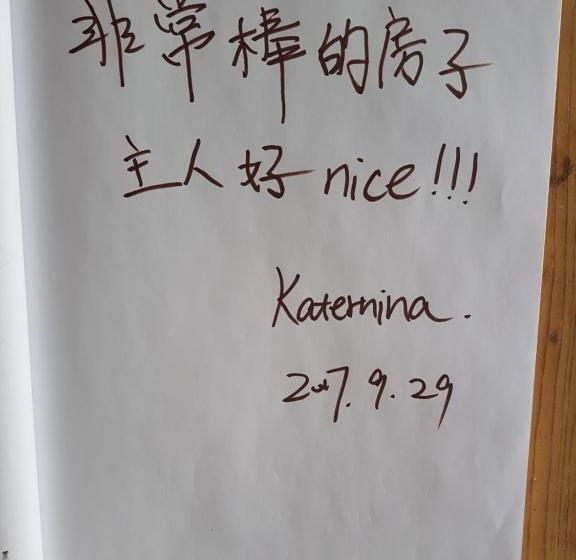 非常棒的房子
主人好nice!!!
Katernina.
2017.9.29